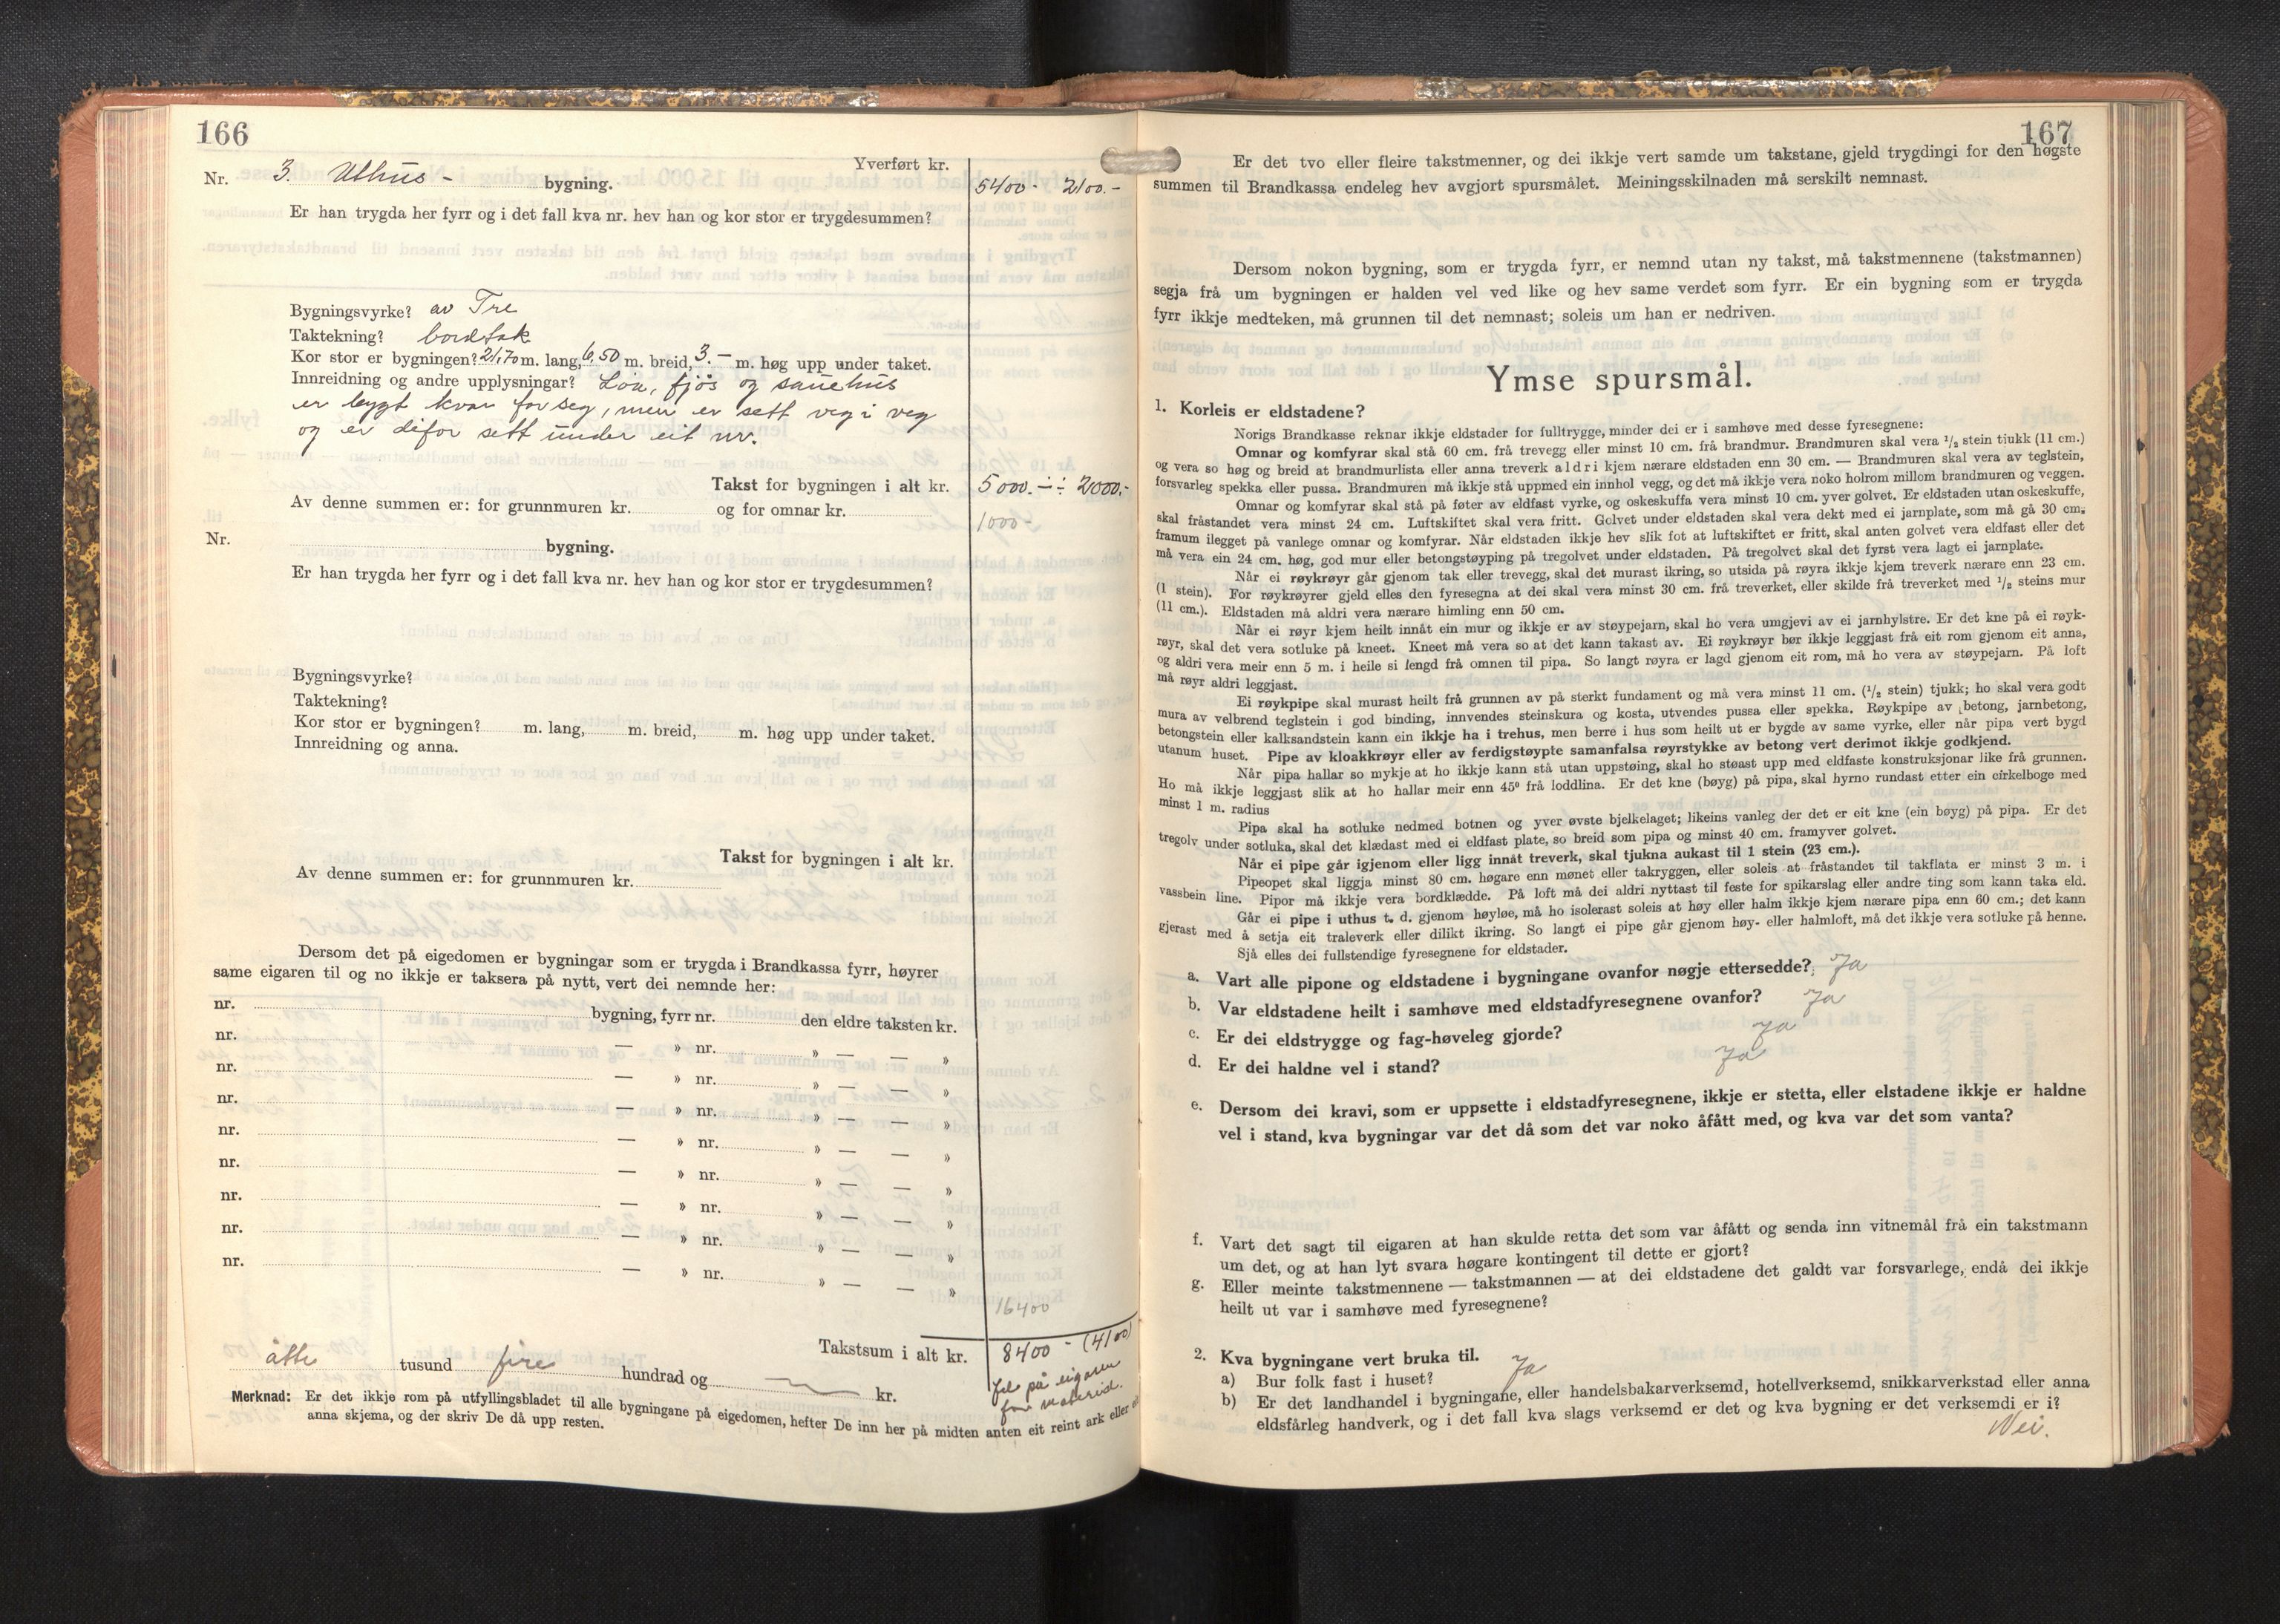 166
Yverført kr.
Nr. 3. Uthus - bygning.
5400 - 2100.-
Er han trygda her fyrr og i det fall kva nr. hev han og kor stor er trygdesummen?
Bygningsvyrke? av Tre
Taktekning? bordtak
Kor stor er bygningen? 21,70 m. lang, 6,50 m. breid, 3.- m. høg upp under taket.
Innreidning og andre upplysningar? Löa, fjös og sauehus
er bygt kvar for seg, men er sett veg i veg
og er difor sett under eit nr.
Takst for bygningen i alt kr. 5000.- ÷ 2000.-
Av denne summen er: for grunnmuren kr. og for omnar kr. 1000-
Nr. bygning.
Er han trygda her fyrr og i det fall kva nr. hev han og kor stor er trygdesummen?
Bygningsvyrke?
Taktekning?
Kor stor er bygningen? m. lang, m. breid, m. høg upp under taket.
Innreidning og anna.
Takst for bygningen i alt kr.
Av denne summen er: for grunnmuren kr.
Dersom det på eigedomen er bygningar som er trygda i Brandkassa fyrr, høyrer
same eigaren til og no ikkje er taksera på nytt, vert dei nemnde her:
nr. bygning, fyrr nr. den eldre taksten kr.
nr. — » nr. » — — »
nr. — » nr. » — — »
nr. — » nr. » — — »
nr. — » nr. » — — »
nr. — » nr. » — — »
nr. — » nr. » — — »
nr. — » nr. » — — »
nr. — » nr. » — — »
16400
Takstsum i alt kr. 8400 - (4100)
åtte tusund fire hundrad og kr.
på eigaren
Merknad: Er det ikkje rom på utfyllingsbladet til alle bygningane på eigedomen, hefter De inn her på midten anten eit reint ark eller
anna skjema, og der skriv De då upp resten.
167
Er det tvo eller fleire takstmenner, og dei ikkje vert samde um takstane, gjeld trygdingi for den høgste
summen til Brandkassa endeleg hev avgjort spursmålet. Meiningsskilnaden må serskilt nemnast.
Dersom nokon bygning, som er trygda fyrr, er nemnd utan ny takst, må takstmennene (takstmannen)
segja frå um bygningen er halden vel ved like og hev same verdet som fyrr. Er ein bygning som er trygda
fyrr ikkje medteken, må grunnen til det nemnast; soleis um han er nedriven.
Ymse spursmål.
1. Korleis er eldstadene?
Norigs Brandkasse reknar ikkje eldstader for fulltrygge, minder dei er i samhøve med desse fyresegnene:
Omnar og komfyrar skal stå 60 cm. frå trevegg eller minst 10 cm. frå brandmur. Brandmuren skal vera ¹/₂ stein tjukk (11 cm.)
og vera so høg og breid at brandmurlista eller anna treverk aldri kjem nærare eldstaden enn 30 cm. — Brandmuren skal vera av teglstein,
forsvarleg spekka eller pussa. Brandmuren må ikkje stå uppmed ein innhol vegg, og det må ikkje vera noko holrom millom brandmuren og veggen.
Omnar og komfyrar skal stå på føter av eldfast vyrke, og oskeskuffa vera minst 10 cm. yver golvet. Er eldstaden utan oskeskuffe,
skal fråstandet vera minst 24 cm. Luftskiftet skal vera fritt. Golvet under eldstaden skal vera dekt med ei jarnplate, som må gå 30 cm.
framum ilegget på vanlege omnar og komfyrar. Når eldstaden ikkje hev slik fot at luftskiftet er fritt, skal anten golvet vera eldfast eller det
må vera ein 24 cm. høg, god mur eller betongstøyping på tregolvet under eldstaden. På tregolvet skal det fyrst vera lagt ei jarnplate.
Når ei røykrøyr går gjenom tak eller trevegg, skal det murast ikring, so utsida på røyra ikkje kjem treverk nærare enn 23 cm.
(1 stein). For røykrøyrer gjeld elles den fyresegna at dei skal vera minst 30 cm. frå treverket, eller skilde frå treverket med ¹/₂ steins mur
(11 cm.). Eldstaden må aldri vera nærare himling enn 50 cm.
Når ei røyr kjem heilt innåt ein mur og ikkje er av støypejarn, skal ho vera umgjevi av ei jarnhylstre. Er det kne på ei røyk-
røyr, skal det vera sotluke på kneet. Kneet må vera so at det kann takast av. Ei røykrøyr bør ikkje leggjast frå eit rom gjenom eit anna,
og aldri vera meir enn 5 m. i heile si lengd frå omnen til pipa. So langt røyra er lagd gjenom eit rom, må ho vera av støypejarn. På loft
må røyr aldri leggjast.
Ei røykpipe skal murast heilt frå grunnen av på sterkt fundament og må vera minst 11 cm. (¹/₂ stein) tjukk; ho skal vera godt
mura av velbrend teglstein i god binding, innvendes steinskura og kosta, utvendes pussa eller spekka. Røykpipe av betong, jarnbetong,
betongstein eller kalksandstein kann ein ikkje ha i trehus, men berre i hus som heilt ut er bygde av same vyrke, eller når pipa vert bygd
utanum huset. Pipe av kloakkrøyr eller av ferdigstøypte samanfalsa røyrstykke av betong vert derimot ikkje godkjend.
Når pipa hallar so mykje at ho ikkje kann stå utan uppstøing, skal ho støast upp med eldfaste konstruksjonar like frå grunnen.
Ho må ikkje leggjast slik at ho hallar meir enn 45° frå loddlina. Er det kne (bøyg) på pipa, skal hyrno rundast etter ein cirkelboge med
minst 1 m. radius
Pipa skal ha sotluke nedmed botnen og yver øvste bjelkelaget; likeins vanleg der det er eit kne (ein bøyg) på pipa. Er det
tregolv under sotluka, skal det klædast med ei eldfast plate, so breid som pipa og minst 40 cm. framyver golvet.
Når ei pipe går igjenom eller ligg innåt treverk, skal tjukna aukast til 1 stein (23 cm.).
Pipeopet skal liggja minst 80 cm. høgare enn mønet eller takryggen, eller soleis at fråstandet til takflata er minst 3 m. i
vassbein line. Pipor må ikkje vera bordklædde. På loft må dei aldri nyttast til feste for spikarslag eller andre ting som kann taka eld.
Går ei pipe i uthus t. d. gjenom høyløe, må ho isolerast soleis at høy eller halm ikkje kjem nærare pipa enn 60 cm.; det kann
gjerast med å setja eit traleverk eller dilikt ikring. So langt ei pipe går gjenom høy- eller halmloft, må det ikkje vera sotluke på henne.
Sjå elles dei fullstendige fyresegnene for eldstader.
a. Vart alle pipone og eldstadene i bygningane ovanfor nøgje ettersedde? Ja
b. Var eldstadene heilt i samhøve med eldstadfyresegnene ovanfor? Ja
c. Er dei eldstrygge og fag-høveleg gjorde? Ja
d. Er dei haldne vel i stand? Ja
e. Dersom dei kravi, som er uppsette i eldstadfyresegnene, ikkje er stetta, eller elstadene ikkje er haldne
vel i stand, kva bygningar var det då som det var noko åfått med, og kva var det som vanta?
f. Vart det sagt til eigaren at han skulde retta det som var åfått og senda inn vitnemål frå ein takstmann
um det, og at han lyt svara høgare kontingent til dette er gjort?
g. Eller meinte takstmennene — takstmannen — at dei eldstadene det galdt var forsvarlege, endå dei ikkje
heilt ut var i samhøve med fyresegnene?
2. Kva bygningane vert bruka til.
a) Bur folk fast i huset? Ja
b) Er det landhandel i bygningane, eller handelsbakarverksemd, hotellverksemd, snikkarverkstad eller anna
eldsfårleg handverk, og i det fall kva slags verksemd er det og kva bygning er det verksemdi er i?
Nei.